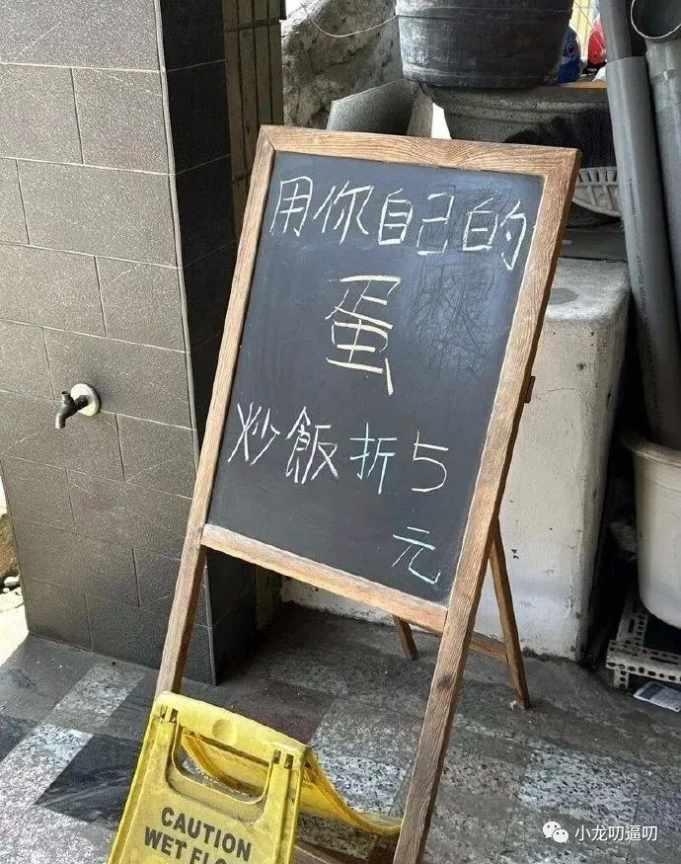 用你自己的
蛋
炒飯折5
元
CAUTION
WET FLO
小龙叨逼叨